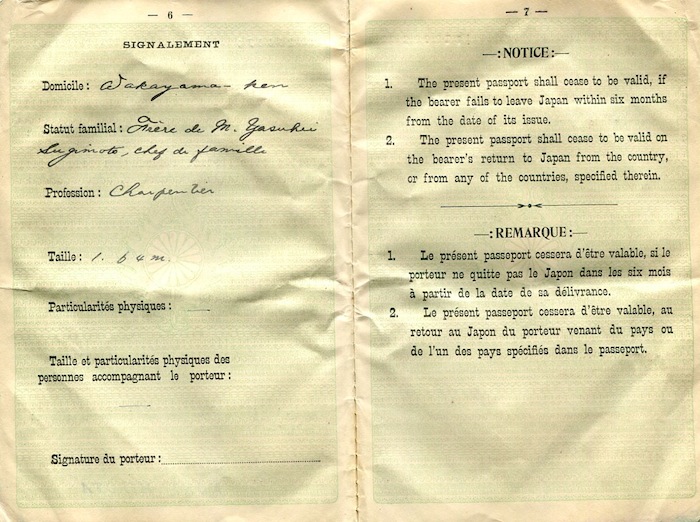 — 6 —
SIGNALEMENT
Domicile: Wakayama-ken
Statut familial: Frère de M. Yasuhei
Sugimoto, chef de famille
Profession: Charpentier
Taille: 1. 64 m.
Particularités physiques:
Taille et particularités physiques des
personnes accompagnant le porteur:
Signature du porteur:
— 7 —
—:NOTICE:—
1. The present passport shall cease to be valid, if
the bearer fails to leave Japan within six months
from the date of its issue.
2. The present passport shall cease to be valid on
the bearer's return to Japan from the country,
or from any of the countries, specified therein.
—:REMARQUE:—
1. Le présent passeport cessera d'être valable, si le
porteur ne quitte pas le Japon dans les six mois
à partir de la date de sa délivrance.
2. Le présent passeport cessera d'être valable, au
retour au Japon du porteur venant du pays ou
de l'un des pays spécifiés dans le passeport.